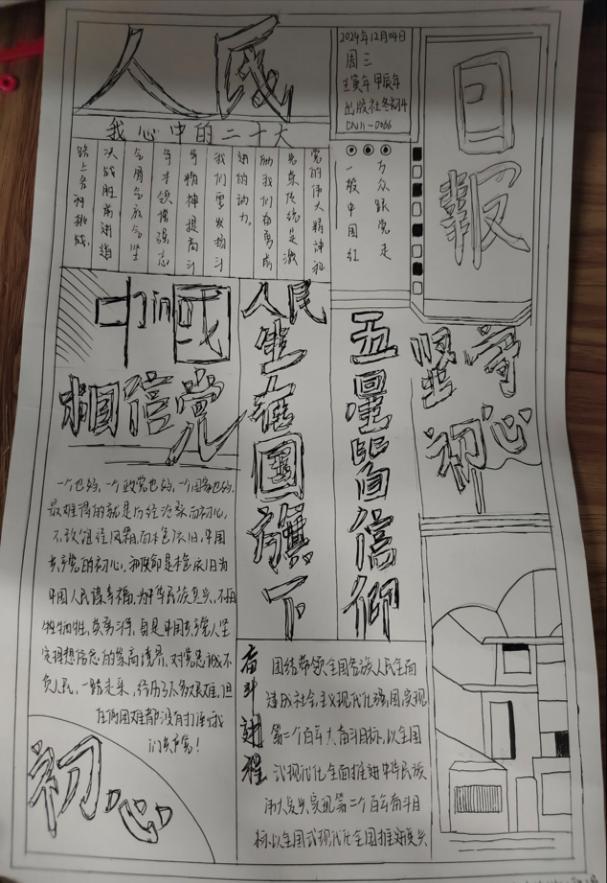 人民
日报
2024年12月04日
周三
壬寅年 甲辰年
CN11-0066
我心中的二十大
党的伟大精神和
光荣传统是激
励我们奋勇前
进的动力。
我们要发扬斗
争精神提高斗
争本领增强志
决战胜前进道
路上各种挑战。
万众跟党走
一般中国红
中国
相信党
人民
生在国旗下
五星皆信仰
坚守
初心
一个也好，一个政党也好，一个国家也好。
最难得的就是历经沧桑而初心
不改饱经风霜而本色依旧，中国
共产党的初心，和使命是本色依旧为
中国人民谋幸福，为中华民族复兴，不怕
牺牲，英勇斗争，自是中国共产党人坚
定理想信念的崇高境界，对党忠诚不
负人民，一路走来，经历了众多艰难，但
任何困难都没有打倒我
们共产党！
初心
奋斗进程
团结带领全国各族人民全面
建成社会主义现代化强国，实现
第二个百年大奋斗目标，以全国
式现代化全面推进中华民族
伟大复兴实现第二个百年奋斗目
标，以全国式现代化全国推进复兴